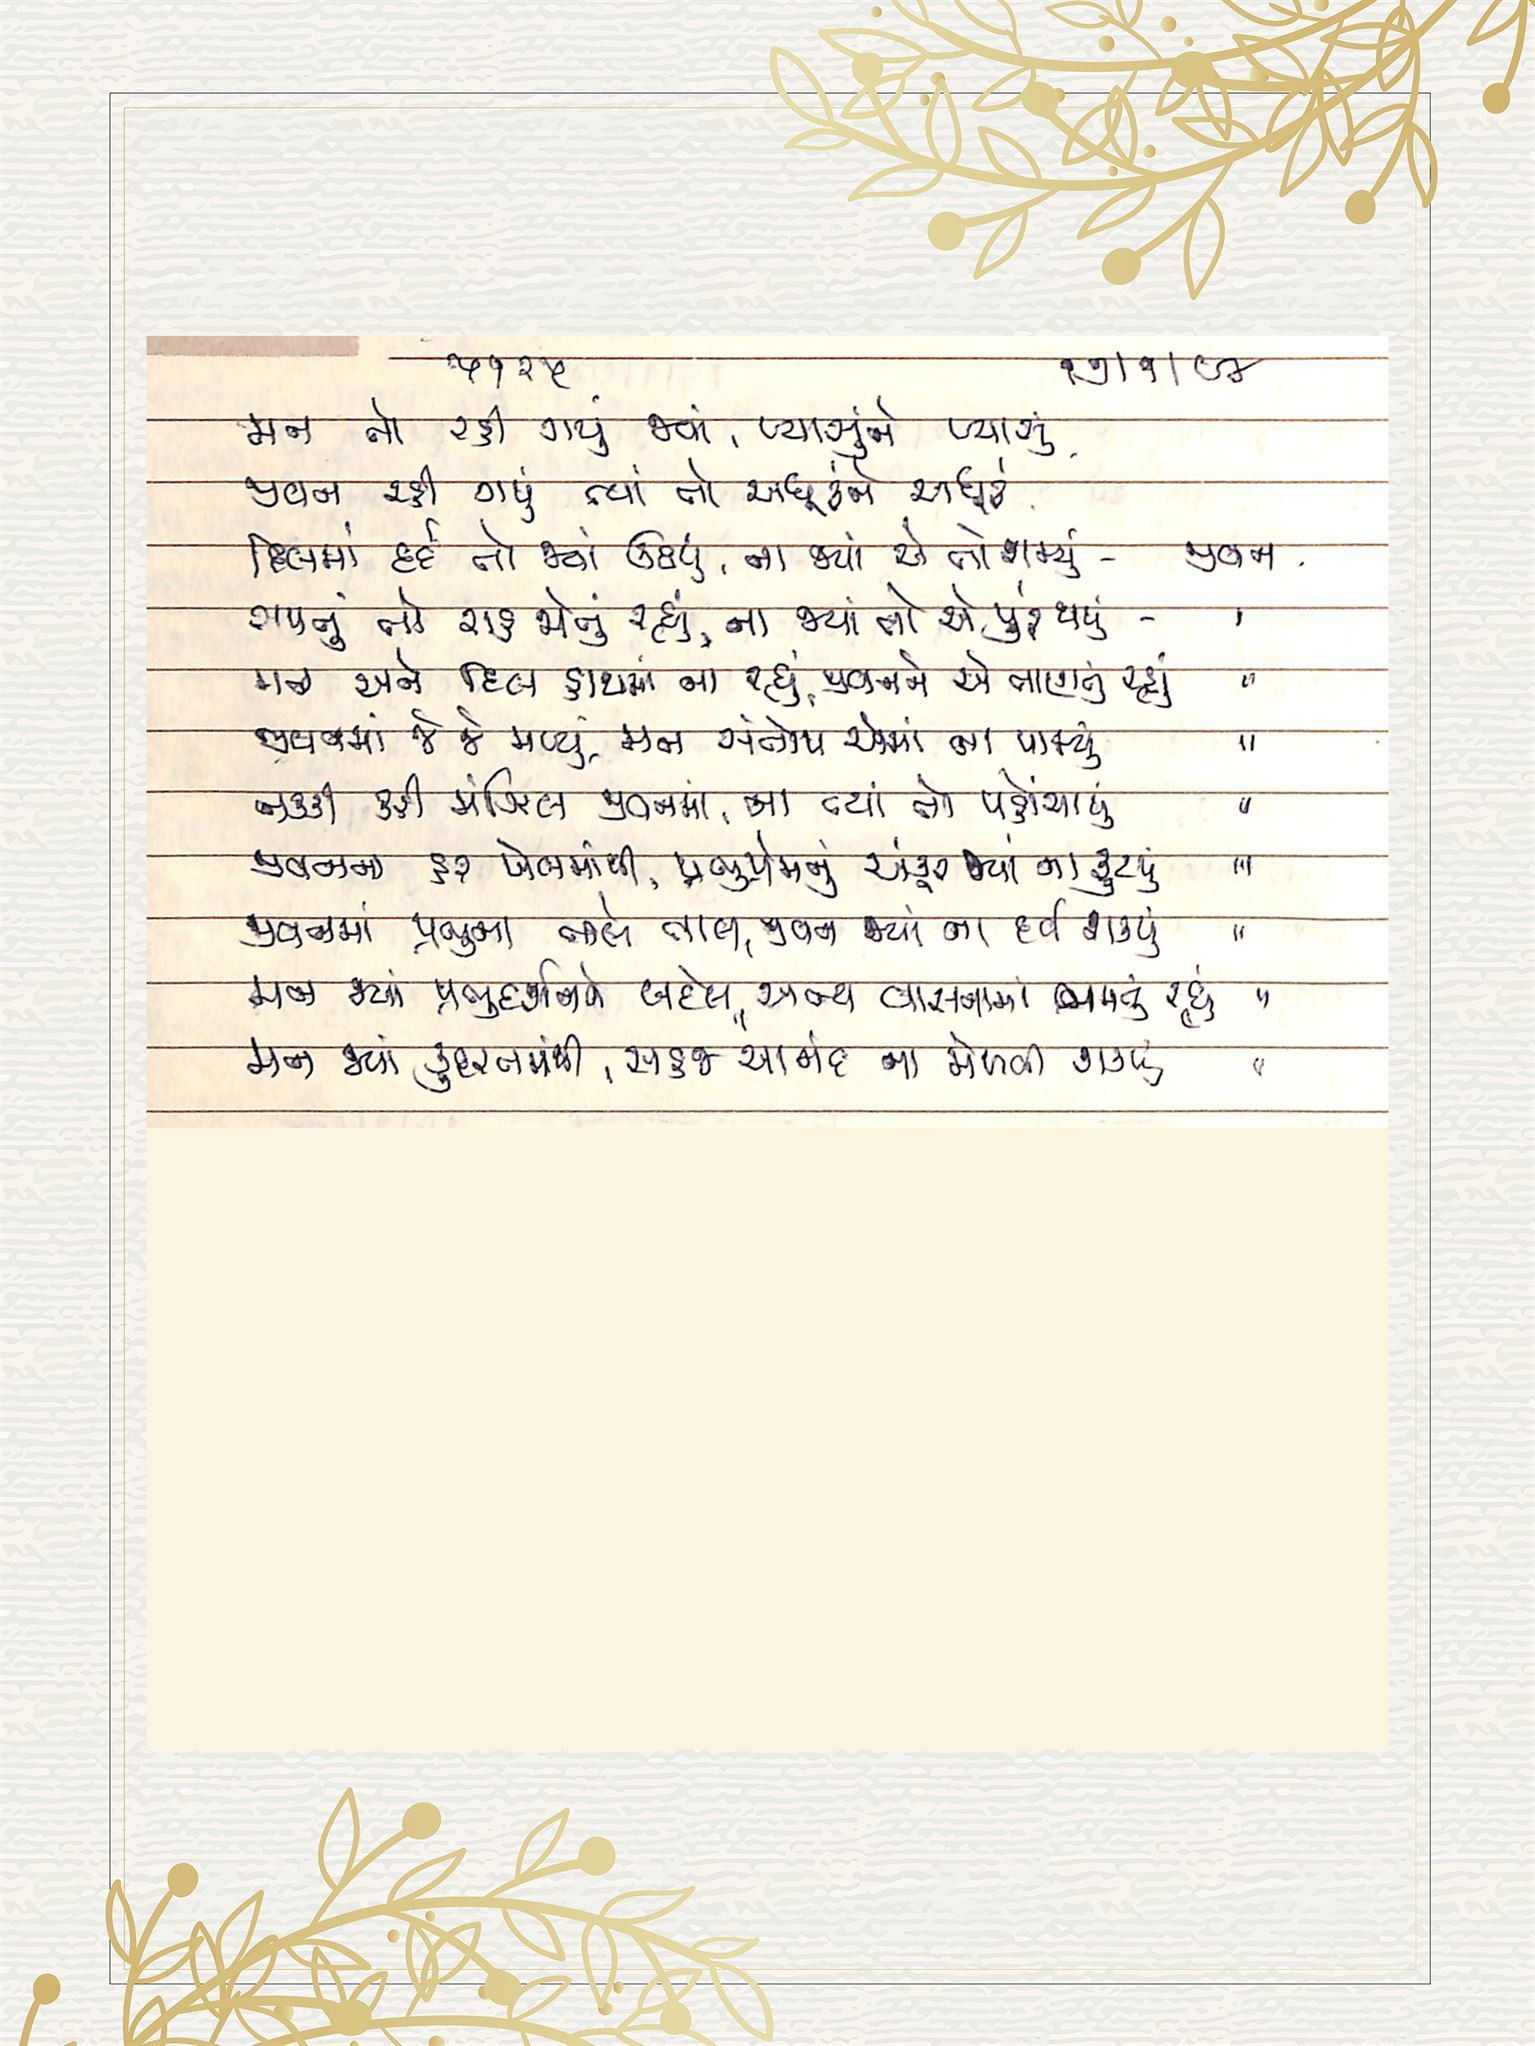 ૫૧૨૫ ૧૭/૧/૯૪
મન તો રહી ગયું જ્યાં, પ્યાસુંને પ્યાસું
જીવન રહી ગયું ત્યાં તો અધૂરુંને અધૂરું
દિલમાં દર્દ તો જ્યાં ઉઠયું, ના જ્યાં એ તો શમ્યું - જીવન.
સપનું તો રાહ જોતું રહ્યું, ના જ્યાં તો એ પુરું થયું - "
મન અને દિલ હાથમાં ના રહ્યું, જીવનને એ તાણતું રહ્યું "
જીવનમાં જે જે મળ્યું, મન સંતોષ એમાં ના પામ્યું "
નક્કી કરી મંઝિલ જીવનમાં, ના ત્યાં તો પહોંચાયું "
જીવનના હર ખેલમાંથી, પ્રભુપ્રેમનું અંકૂર જ્યાં ના ફુટયું "
જીવનમાં પ્રભુના તાલે તાલ, જીવન જ્યાં ના દઈ શક્યું "
મન જ્યાં પ્રભુદર્શનને બદલે, અન્ય વાસનામાં ભમતું રહ્યું "
મન જ્યાં કુદરતમાંથી, સહજ આનંદ ના મેળવી શક્યું "